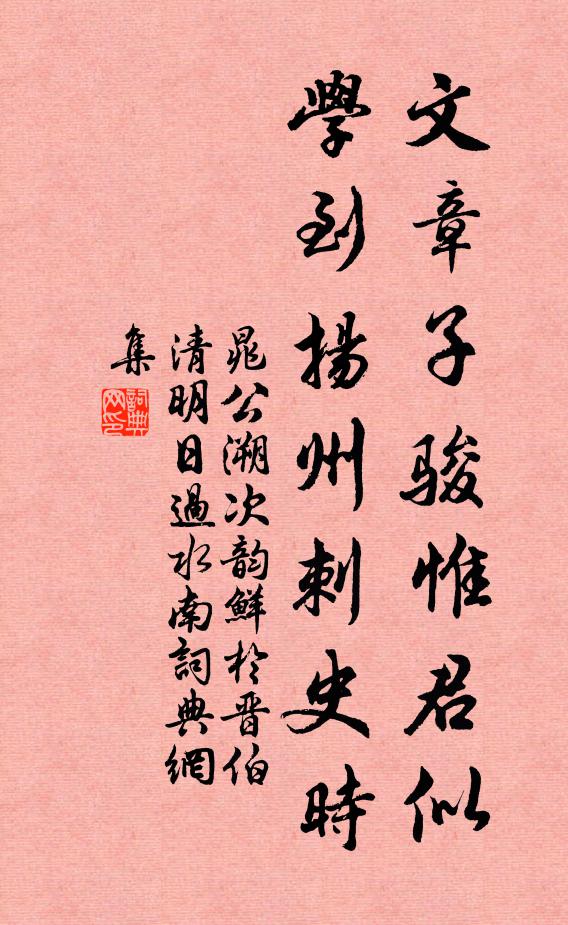 文章子駿惟君似
學到揚州刺史時
晁公溯次韵鮮於晋伯
清明日過水南詞典網
集
詞典網印